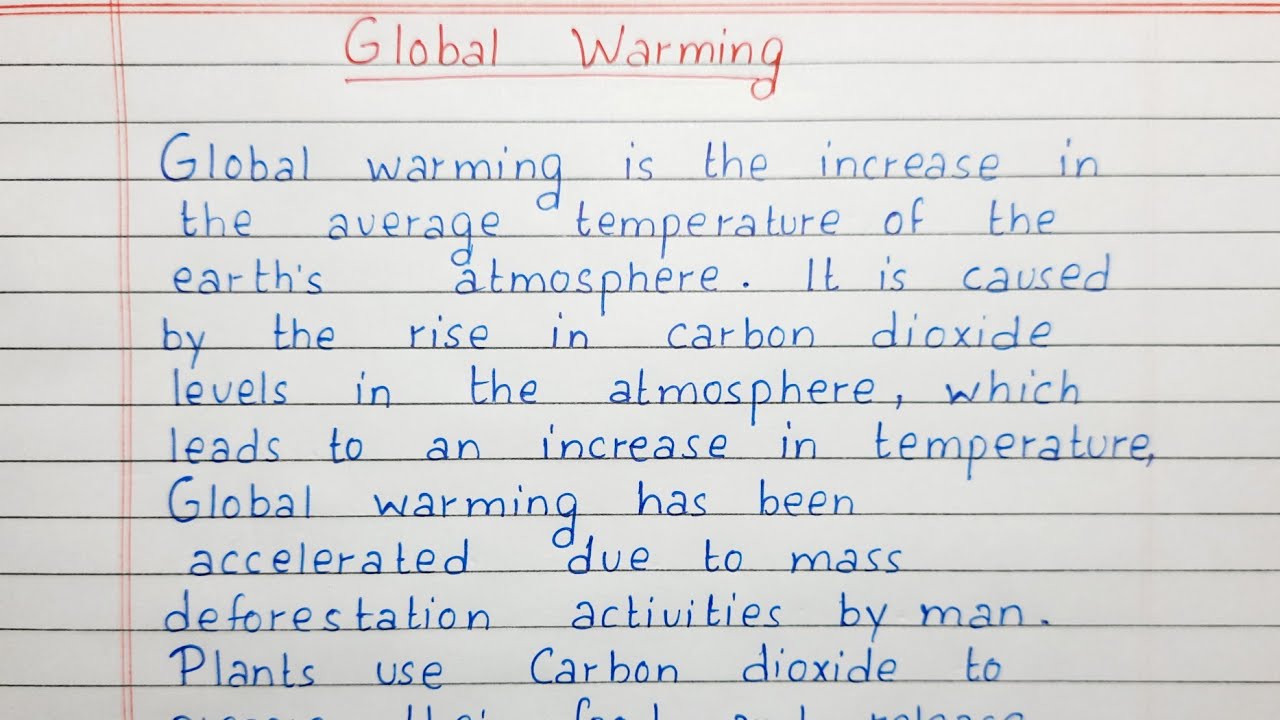 Global Warming
Global warming is the increase in
the average temperature of the
earth's atmosphere. It is caused
by the rise in carbon dioxide
levels in the atmosphere, which
leads to an increase in temperature,
Global warming has been
accelerated due to mass
deforestation activities by man.
Plants use Carbon dioxide to